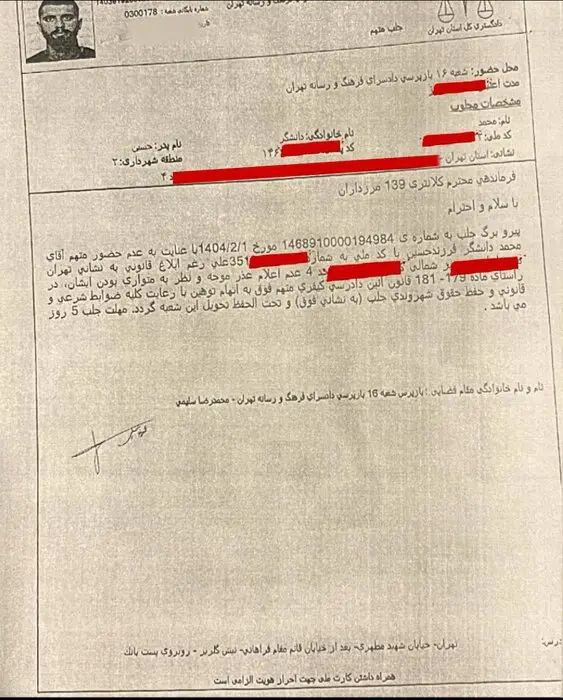 شماره بایگانی شعبه : 0300178
جلب متهم
دادگستری کل استان تهران
محل حضور: شعبه ۱۶ بازپرسی دادسرای فرهنگ و رسانه تهران
مدت
مشخصات مطلوب
نام: محمد نام خانوادگی: دانشگر نام پدر: حسین
کد ملی: کد ۱۴۶ منطقه شهرداری: ۲
نشانی: استان تهران - ۴
فرماندهی محترم کلانتری 139 مرزداران
با سلام و احترام
پیرو برگ جلب به شماره ی 1468910000194984 مورخ 1404/2/1با عنایت به عدم حضور متهم آقای
محمد دانشگر فرزندحسین با کد ملی به شماره 351علی رغم ابلاغ قانونی به نشانی تهران
شمالی 4 عدم اعلام عذر موجه و نظر به متواری بودن ایشان، در
راستای ماده 179- 181 قانون آئین دادرسی کیفری متهم فوق به اتهام توهین با رعایت کلیه ضوابط شرعی و
قانونی و حفظ حقوق شهروندی جلب (به نشانی فوق) و تحت الحفظ تحویل این شعبه گردد. مهلت جلب 5 روز
می باشد .
نام و نام خانوادگی مقام قضایی : بازپرس شعبه 16 بازپرسی دادسرای فرهنگ و رسانه تهران - محمدرضا سلیمی
درس: تهران- خیابان شهید مطهری- بعد از خیابان قائم مقام فراهانی- نبش گلریز - روبروی پست بانک
همراه داشتن کارت ملی جهت احراز هویت الزامی است